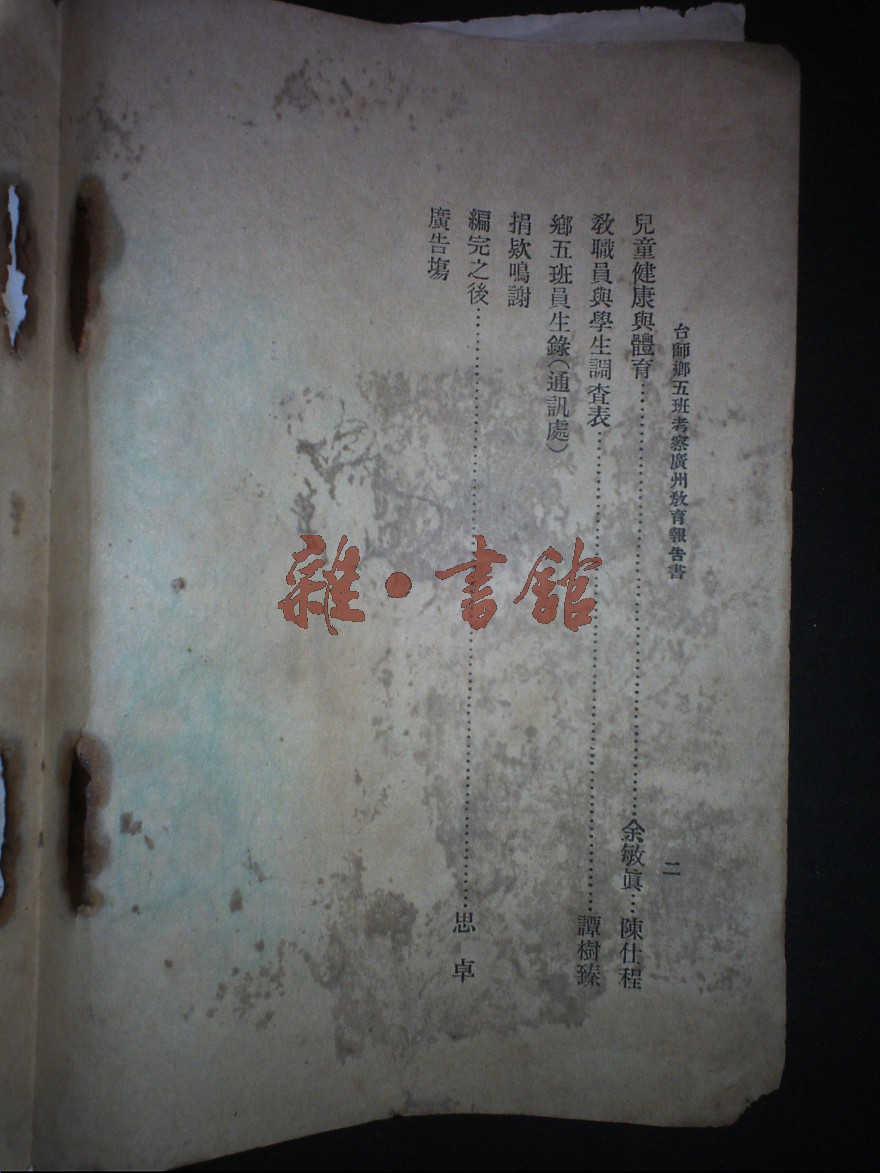 台師鄉五班考察廣州教育報告書
二
兒童健康與體育……余敏眞…陳仕程
敎職員與學生調查表……譚樹臻
鄉五班員生錄(通訊處)
捐欵鳴謝
編完之後……思　卓
廣告塲
雜·書館